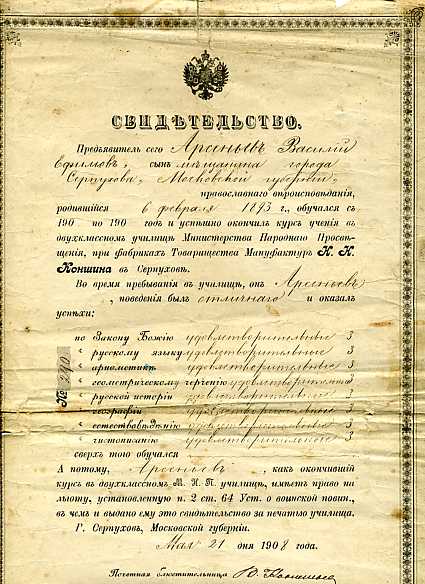 СВИДѢТЕЛЬСТВО.
Предъявитель сего Арсеньевъ Василій
Ефимовъ, сынъ мѣщанина города
Серпухова, Московской губерніи,
православнаго вѣроисповѣданія,
родившійся 6 февраля 1893 г., обучался съ
190 по 190 годъ и успѣшно окончилъ курсъ ученія въ
двухклассномъ училищѣ Министерства Народнаго Просвѣ-
щенія, при фабрикахъ Товарищества Мануфактуръ Н. Н.
Коншина въ Серпуховѣ.
Во время пребыванія въ училищѣ, онъ Арсеньевъ
, поведенія былъ отличнаго и оказалъ
успѣхи:
по Закону Божію удовлетворительные 3
„ русскому языку удовлетворительные 3
„ ариѳметикѣ удовлетворительные 3
„ геометрическому черченію удовлетворительные
„ русской исторіи удовлетворительные 3
„ географіи удовлетворительные 3
„ естествовѣдѣнію удовлетворительные 3
„ чистописанію удовлетворительные 3
№ 290
сверхъ того обучался
А потому, Арсеньевъ, какъ окончившій
курсъ въ двухклассномъ М. Н. П. училищѣ, имѣетъ право на
льготу, установленную п. 2 ст. 64 Уст. о воинской повин.,
въ чемъ и выдано ему это свидѣтельство за печатью училища.
Г. Серпуховъ, Московской губерніи.
Мая 21 дня 1908 года.
Почетная блюстительница В. Коншина